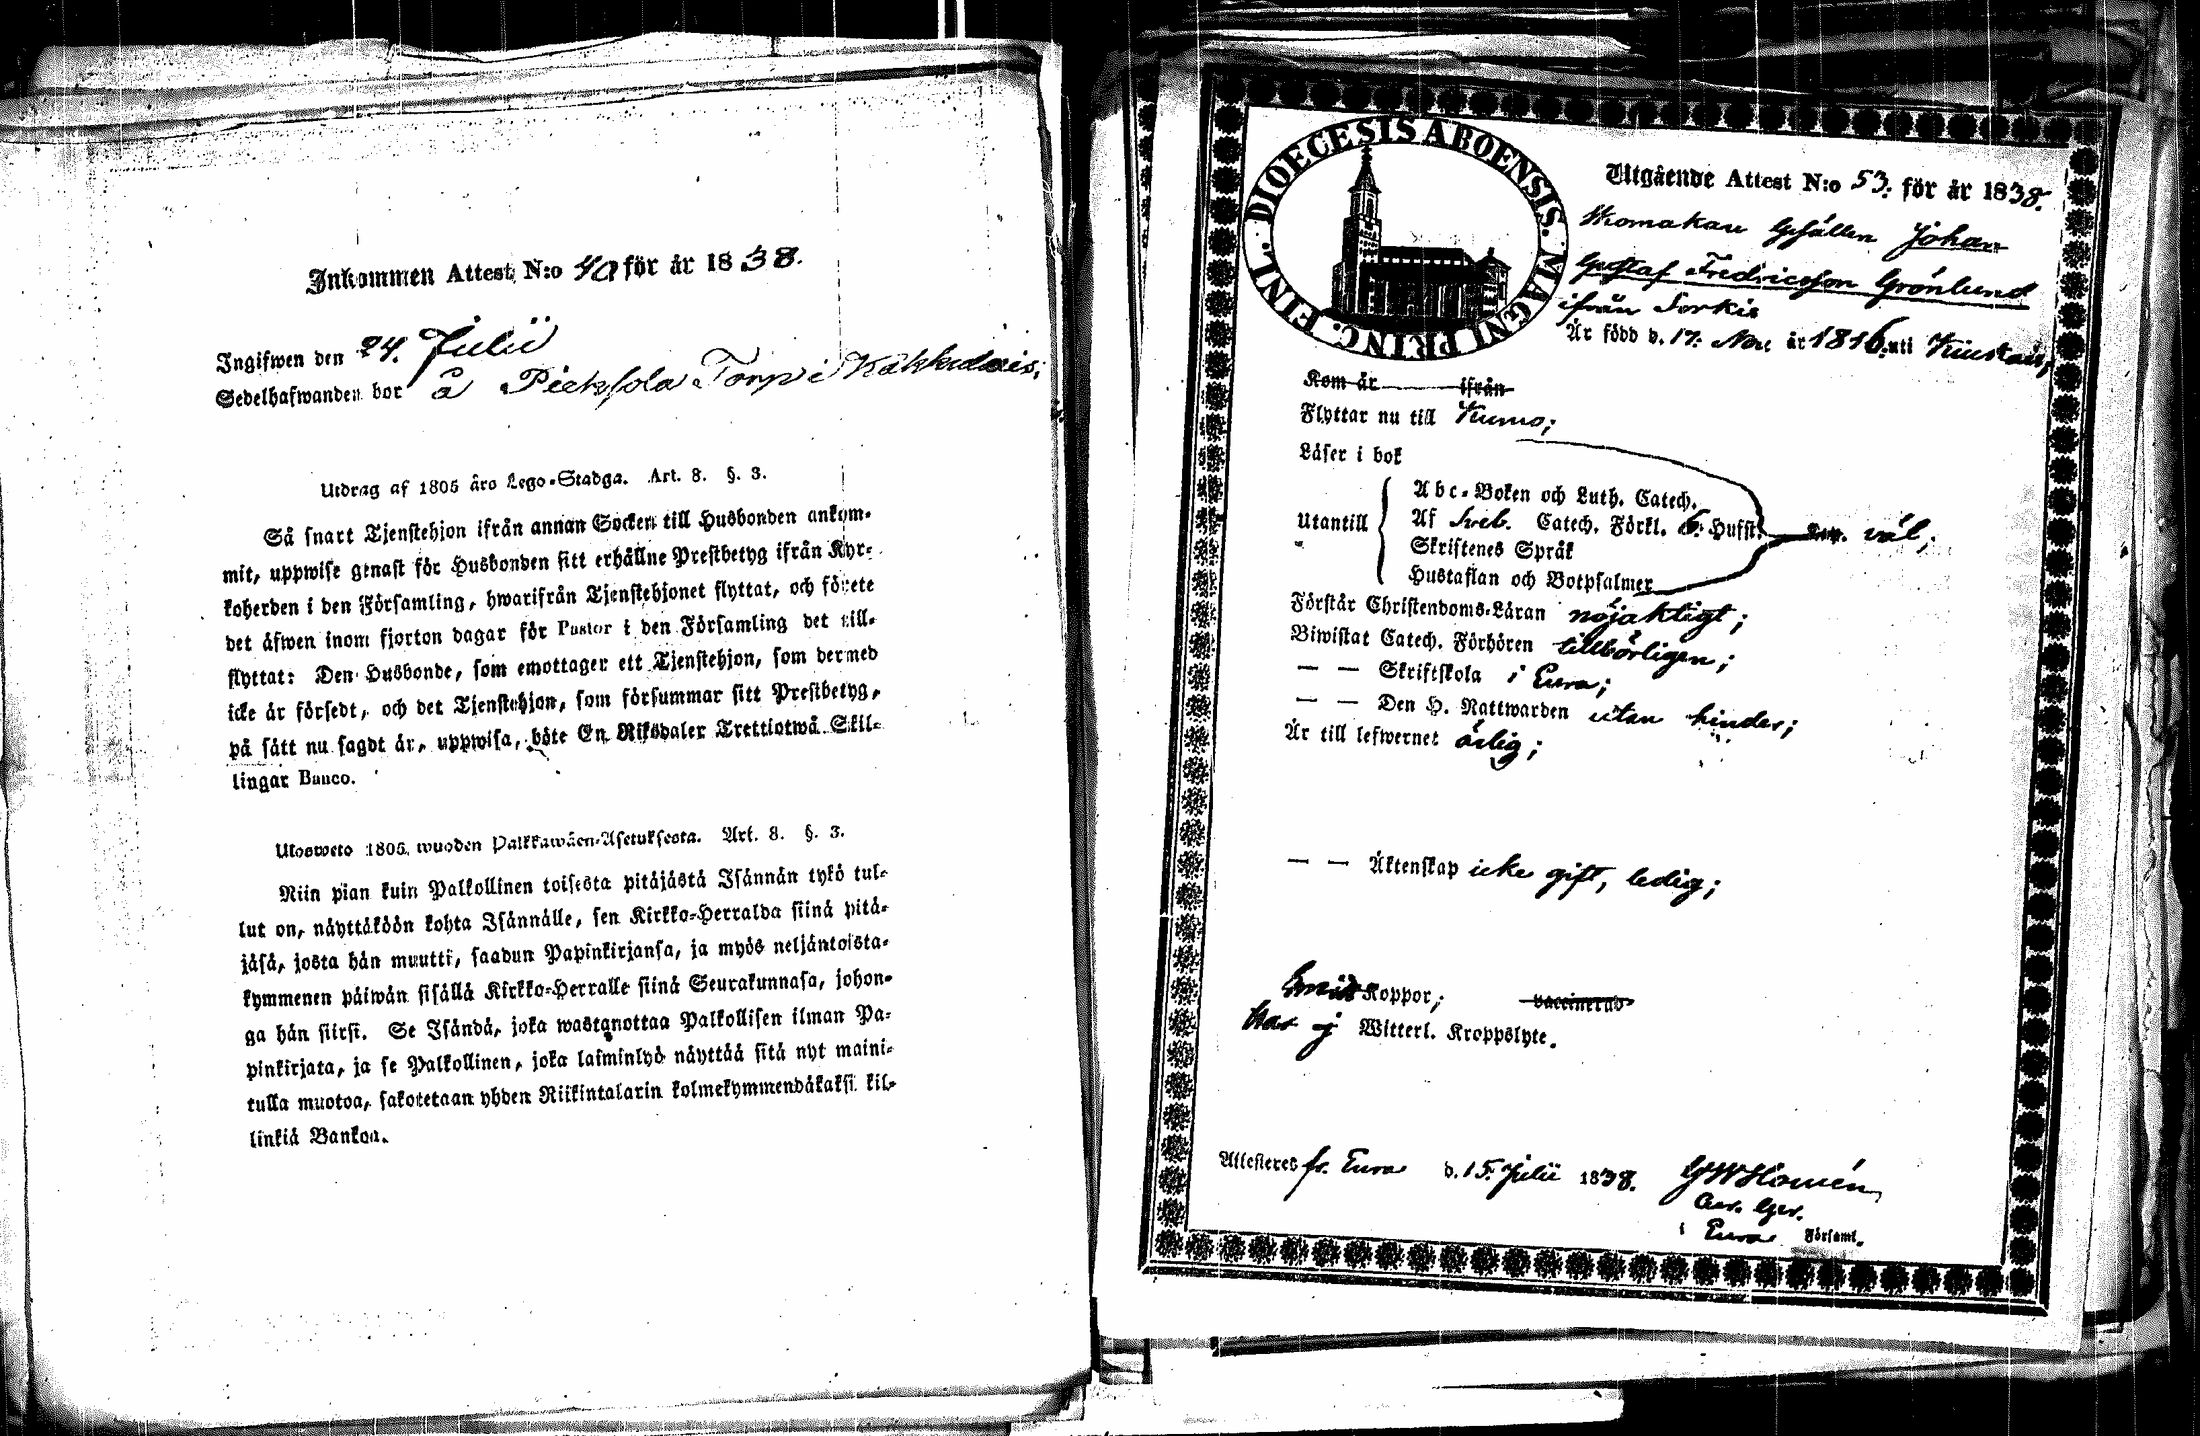 Inkommen Attest N:o 40 för år 1838.
Ingifwen den 24. Julii
Sedelhafwanden bor å Torp i
Utdrag af 1805 års Lego-Stadga. Art. 8. §. 3.
Så snart Tjenstehjon ifrån annan Socken till Husbonden ankom-
mit, uppwise genast för Husbonden sitt erhållne Prestbetyg ifrån Kyr-
koherden i den Församling, hwarifrån Tjenstehjonet flyttat, och förete
det äfwen inom fjorton dagar för Pastor i den Församling det till-
flyttat: Den Husbonde, som emottager ett Tjenstehjon, som dermed
icke är försedt, och det Tjenstehjon, som försummar sitt Prestbetyg,
på sätt nu sagdt är, uppwisa, böte En Riksdaler Trettiotwå Skil-
lingar Banco.
Ulosweto 1805. wuoden Palkkawäen-Asetuksesta. Art. 8. §. 3.
Niin pian kuin Palkollinen toisesta pitäjästä Isännän tykö tul-
lut on, näyttäköön kohta Isännälle, sen Kirkko-Herralda siinä pitä-
jäsä, josta hän muutti, saadun Papinkirjansa, ja myös neljäntoista-
kymmenen päiwän sisällä Kirkko-Herralle siinä Seurakunnasa, johon-
ga hän siirsi. Se Isändä, joka wastanottaa Palkollisen ilman Pa-
pinkirjata, ja se Palkollinen, joka laiminlyö näyttää sitä nyt maini-
tulla muotoa, sakotetaan yhden Riikintalarin kolmekymmendäkaksi kil-
linkiä Bankoa.
DIOECESIS ABOENSIS. MAGNI PRINC. FINL.
Utgående Attest N:o 53. för år 1838.
Skomakare Gesällen Johan
Gustaf Fredricsson Grönlund
ifrån Sorkis
Är född d. 17. Nov. år 1816. uti Kiukais;
Kom år ifrån
Flyttar nu till Kumo;
Läser i bok
Utantill
Abc-Boken och Luth. Catech.
Af Sveb. Catech. Förkl. 6. Hufst.
Skriftenes Språk
Hustaflan och Botpsalmer
väl;
Förstår Christendoms-Läran nöjaktigt;
Biwistat Catech. Förhören tillbörligen;
— — Skriftskola i Eura;
— — Den H. Nattwarden utan hinder;
Är till lefwernet ärlig;
— — Äktenskap icke gift, ledig;
Koppor; vaccinerad
Har ej Witterl. Kroppslyte.
Attesteres fr. Eura d. 15. Julii 1838. GW Homén,
i Eura Församl.